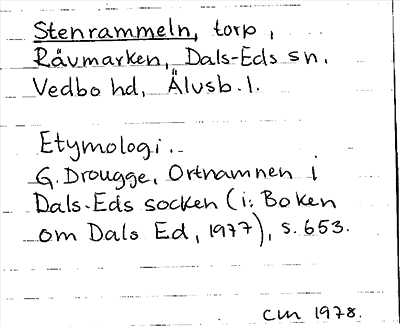 Stenrammeln, torp,
Rävmarken, Dals-Eds sn.
Vedbo hd, Älvsb. l.
Etymologi.-
G. Drougge, Ortnamnen i
Dals-Eds socken (i: Boken
om Dals Ed, 1977), s. 653.
CM 1978.